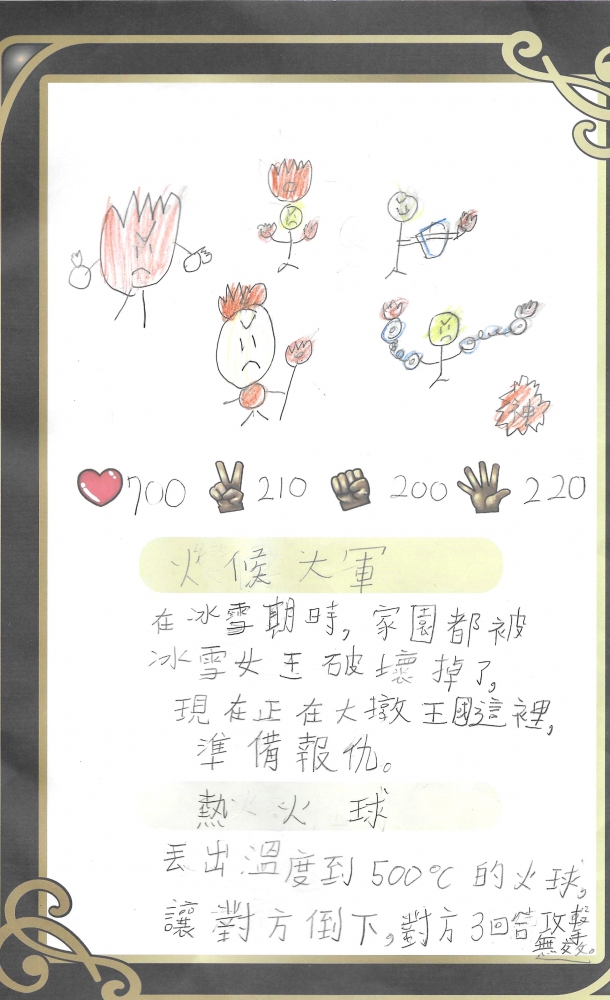 神
700 210 200 220
火候大軍
在冰雪期時,家園都被
冰雪女王破壞掉了,
現在正在大墩王國這裡,
準備報仇。
熱火球
丟出溫度到500℃的火球,
讓對方倒下,對方3回合攻擊
無效。